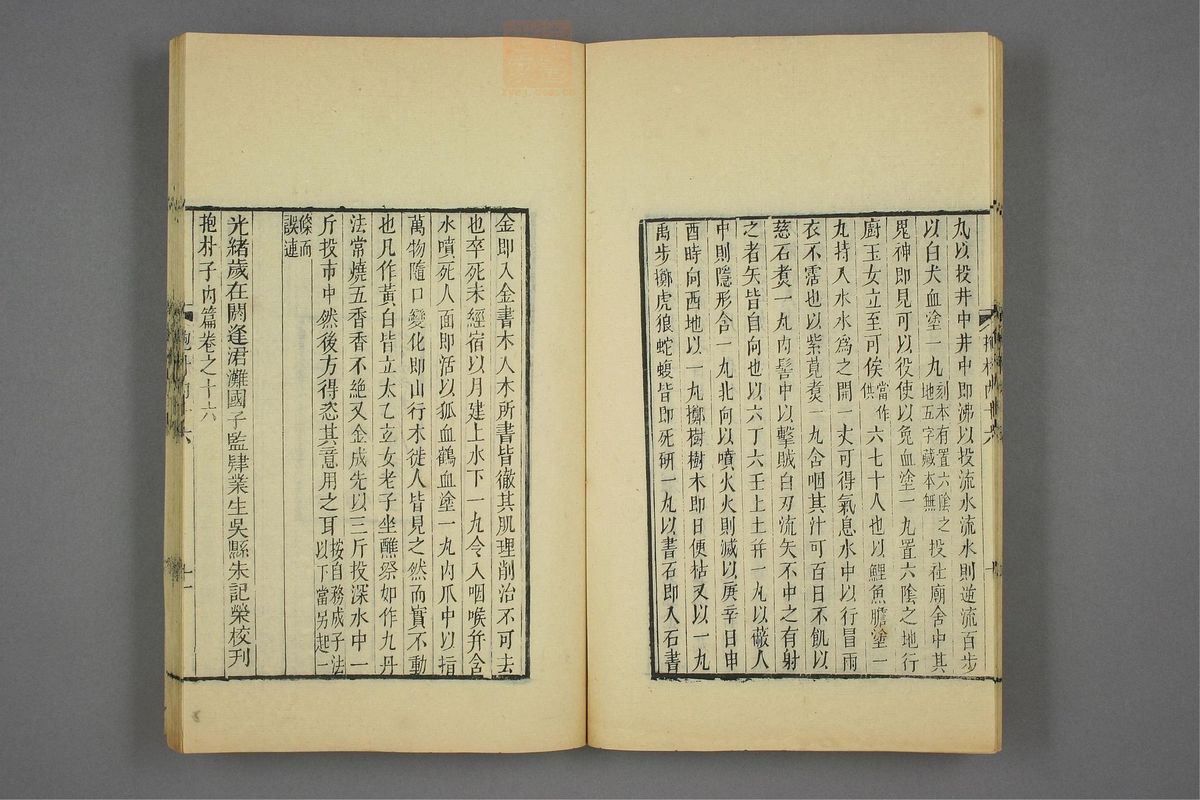 丸以投井中井中卽沸以投流水流水則逆流百步
以白犬血塗一丸刻本有置六陰之地五字藏本無投社廟舍中其
鬼神卽見可以役使以兔血塗一丸置六陰之地行
廚玉女立至可俟當作供六七十人也以鯉魚膽塗一
丸持入水水爲之開一丈可得氣息水中以行冒雨
衣不霑也以紫莧煑一丸含咽其汁可百日不飢以
慈石煑一丸內髻中以擊賊白刃流矢不中之有射
之者矢皆自向也以六丁六壬上土幷一丸以蔽人
中則隱形含一丸北向以噴火火則滅以庚辛日申
酉時向西地以一丸擲樹樹木卽日便枯又以一丸
禹步擲虎狼蛇蝮皆卽死研一丸以書石卽入石書
金卽入金書木入木所書皆徹其肌理削治不可去
也卒死未經宿以月建上水下一丸令入咽喉幷含
水噴死人面卽活以狐血鶴血塗一丸內爪中以指
萬物隨口變化卽山行木徙人皆見之然而實不動
也凡作黃白皆立太乙立女老子坐醮祭如作九丹
法常燒五香香不絕又金成先以三斤投深水中一
斤投市中然後方得恣其意用之耳按自務成子法以下當另起一
條而誤連
光緒歲在閼逢涒灘國子監肄業生吳縣朱記榮校刊
抱朴子內篇卷之十六